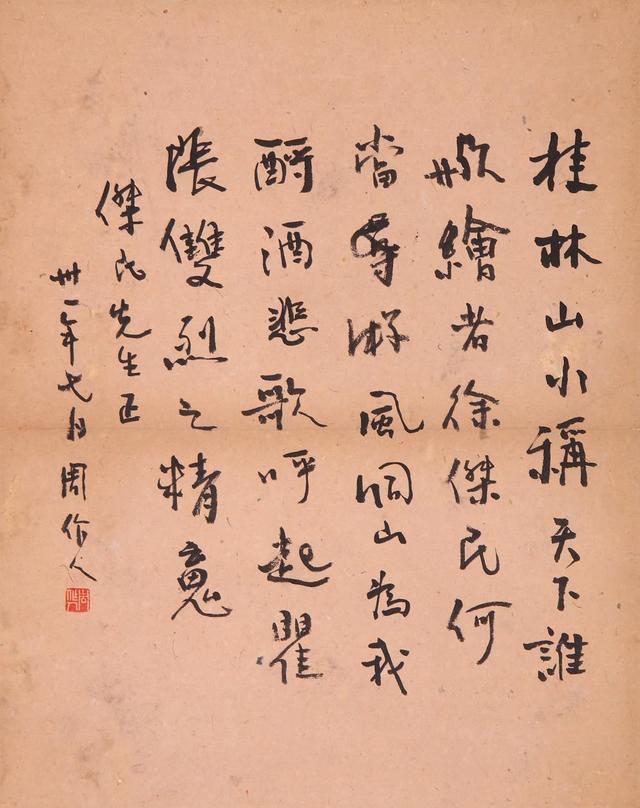 桂林山水稱天下誰
歟繪者徐傑民何
當尋游風洞山為我
酹酒悲歌呼起瞿
張雙烈之精魂
傑民先生正
卅一年七月周作人